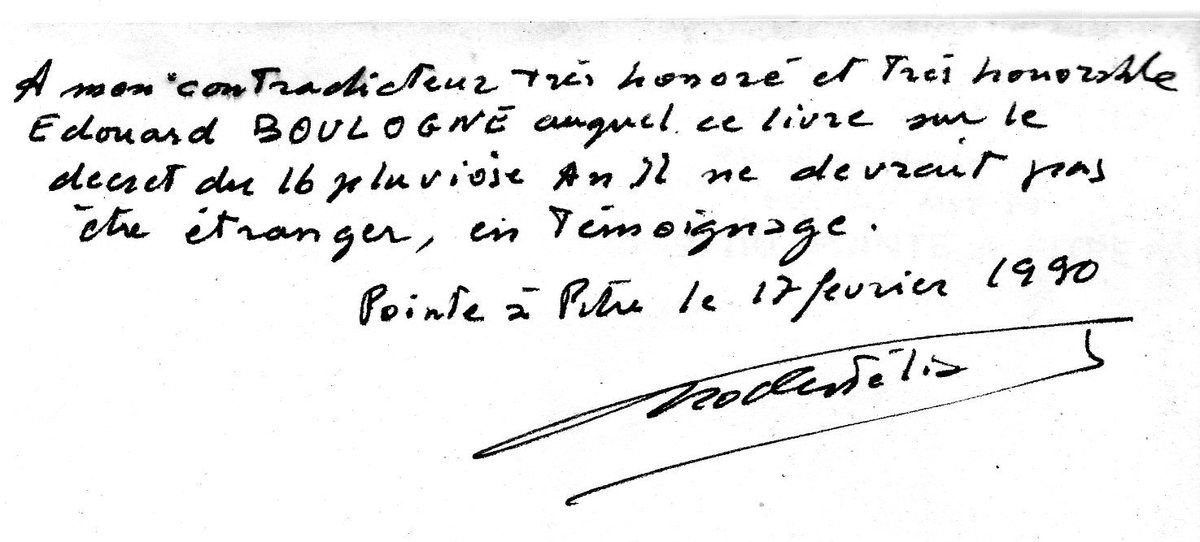 A mon contradicteur très honoré et très honorable
Edouard BOULOGNE auquel ce livre sur le
decret du 16 pluviôse An II ne devrait pas
être étranger, en témoignage.
Pointe à Pitre le 17 fevrier 1990